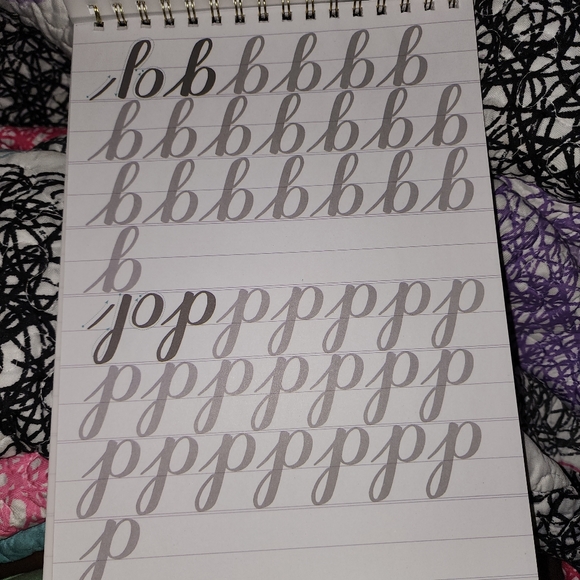 b b b b b
b b b b b b b
b b b b b b b
b
p p p p p p
p p p p p p p
p p p p p p p
p